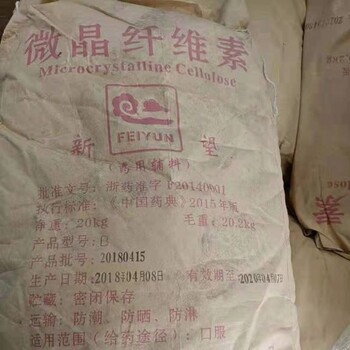 微晶纤维素
Microcrystalline Cellulose
FEIYUN
新 望
(药用辅料)
批准文号: 浙药准字F20140001
执行标准: 《中国药典》2015年版
净重: 20kg 毛重: 20.2kg
产品型号:
产品批号: 20180415
生产日期: 2018年04月08日 有效期至: 2020年04月07日
贮藏: 密闭保存
运输: 防潮、防晒、防淋
适用范围(给药途径): 口服
素